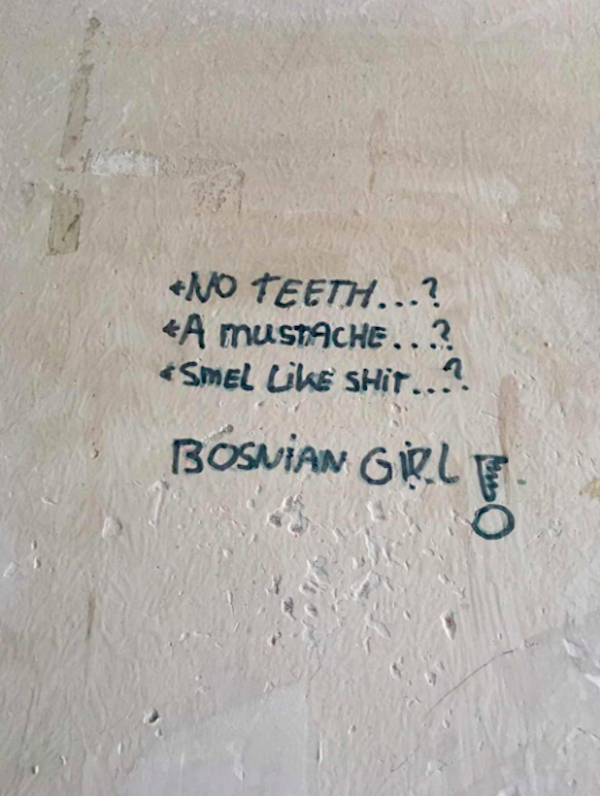 +NO TEETH...?
+A MUSTACHE...?
+SMEL LIKE SHIT...?
BOSNIAN GIRL!